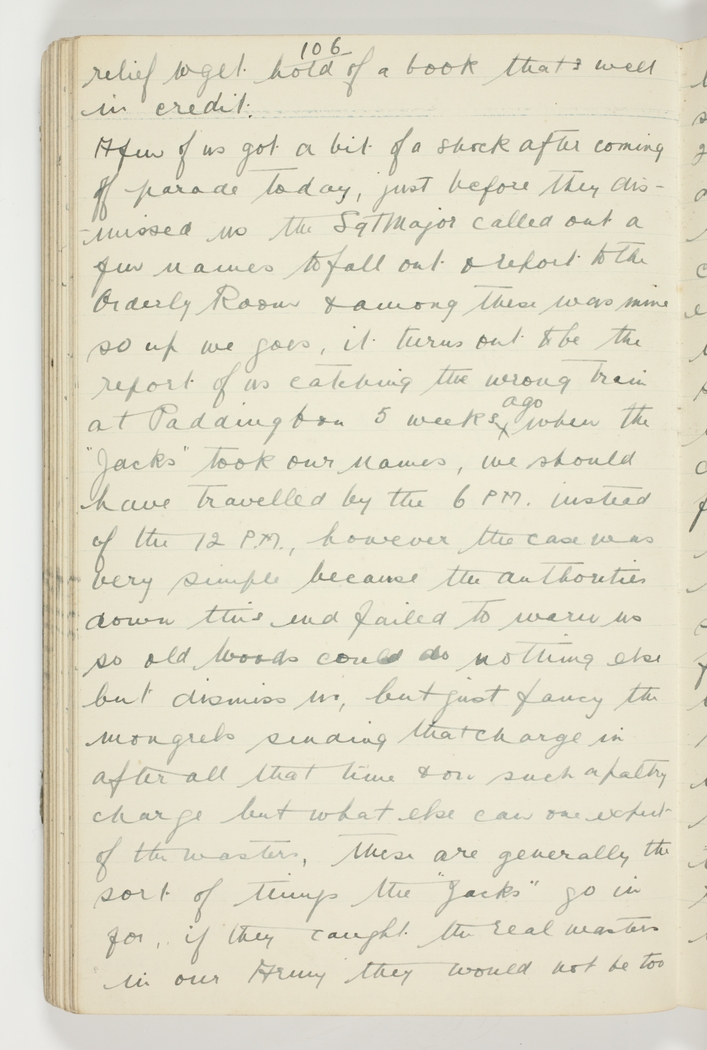 106
relief to get hold of a book that's well
in credit.
A few of us got a bit of a shock after coming
off parade today, just before they dis-
-missed us the Sgt Major called out a
few names to fall out & report to the
Orderly Room & among these was mine
so up we goes, it turns out to be the
report of us catching the wrong train
at Paddington 5 weeks ago when the
"Jacks" took our names, we should
have travelled by the 6 P.M. instead
of the 12 P.M., however the case was
very simple because the authorities
down this end failed to warn us
so old Woods could do nothing else
but dismiss us, but just fancy the
mongrels sending that charge in
after all that time & on such a paltry
charge but what else can one expect
of the wasters, these are generally the
sort of things the "Jacks" go in
for, if they caught the real wasters
in our Army they would not be too